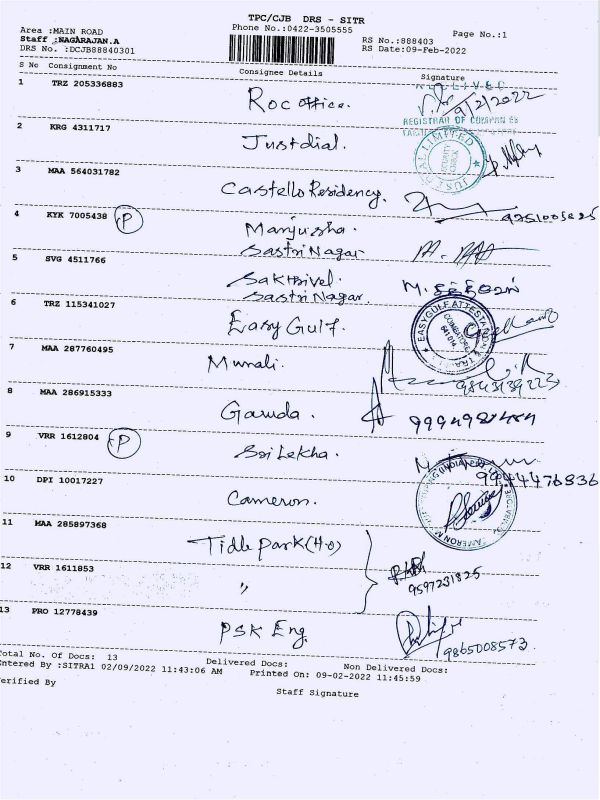 TPC/CJB DRS - SITR
Area :MAIN ROAD Phone No.:0422-3505555 Page No.:1
Staff :NAGARAJAN.A RS No.:888403
DRS No. :DCJB88840301 RS Date:09-Feb-2022
S No Consignment No Consignee Details Signature
1 TRZ 205336883 Roc office. 9/2/2022
RECEIVED
REGISTRAR OF COMPANIES
2 KRG 4311717 Justdial.
JUST DIAL LIMITED
3 MAA 564031782 Castello Residency.
4 KYK 7005438 P Manjusha.
Sastri Nagar
5 SVG 4511766 Sakthivel.
Sastri Nagar.
6 TRZ 115341027 Easy Gulf.
EASYGULF ATTESTATION & TRA
COIMBATORE
641 014
7 MAA 287760495 Murali.
8 MAA 286915333 Garuda.
9 VRR 1612804 P Sri Lekha.
9944476836
10 DPI 10017227 Cameron.
11 MAA 285897368 Tidle Park (H.O)
12 VRR 1611853 "
9597231825
13 PRO 12778439 PSK Eng. 9865008573
Total No. Of Docs: 13 Delivered Docs: Non Delivered Docs:
Entered By :SITRA1 02/09/2022 11:43:06 AM Printed On: 09-02-2022 11:45:59
Verified By Staff Signature